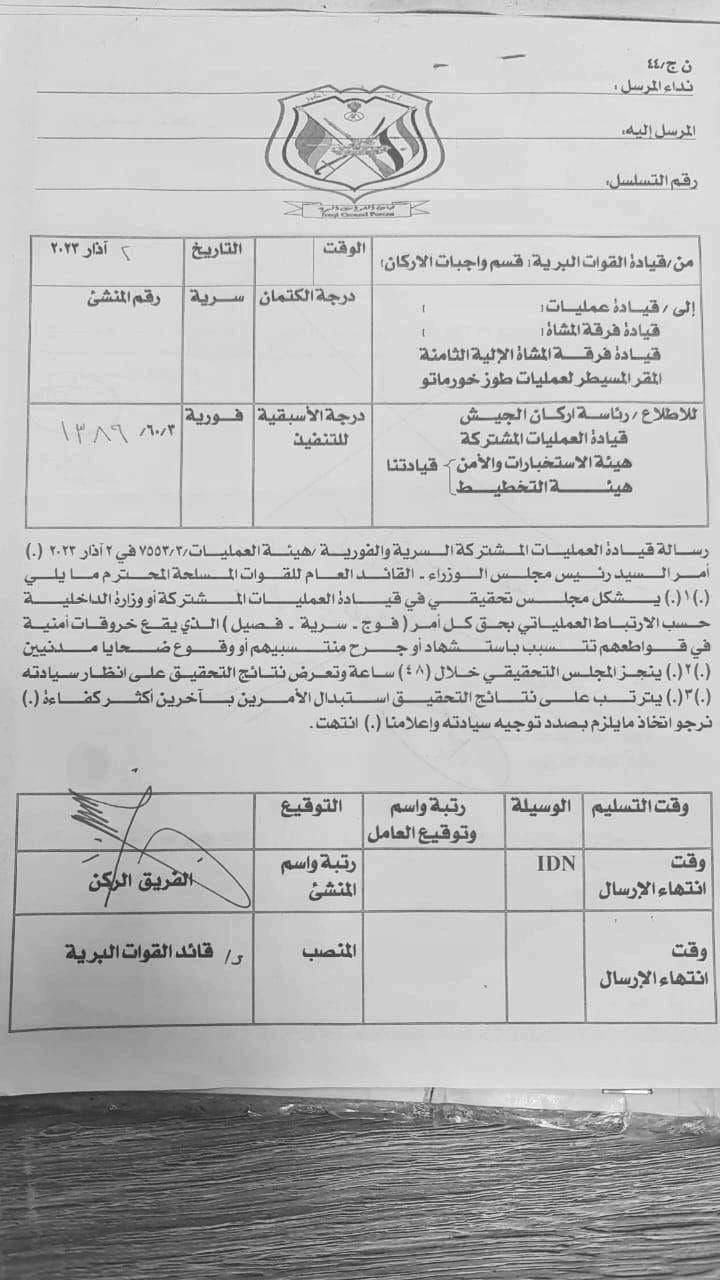 ن ج/٤٤
نداء المرسل :
المرسل إليه:
رقم التسلسل:
Iraqi Ground Forces
من / قيادة القوات البرية : قسم واجبات الاركان : الوقت التاريخ ٢ آذار ٢٠٢٣
إلى / قيادة عمليات : : درجة الكتمان سرية رقم المنشئ
قيادة فرقة المشاة : :
قيادة فرقة المشاة الالية الثامنة
المقر المسيطر لعمليات طوز خورماتو
للاطلاع / رئاسة اركان الجيش درجة الأسبقية للتنفيذ فورية ٣/٦٠/ ١٣٨٩
قيادة العمليات المشتركة
هيئة الاستخبارات والأمن } قيادتنا
هيئة التخطيط
رسالة قيادة العمليات المشتركة السرية والفورية / هيئة العمليات /٣/٣/٧٥٥٣ في ٢ آذار ٢٠٢٣ (.)
أمر السيد رئيس مجلس الوزراء - القائد العام للقوات المسلحة المحترم ما يلي
(.)١(.) يشكل مجلس تحقيقي في قيادة العمليات المشتركة أو وزارة الداخلية
حسب الارتباط العملياتي بحق كل أمر ( فوج - سرية - فصيل ) الذي يقع خروقات أمنية
في قواطعهم تتسبب باستشهاد أو جرح منتسبيهم أو وقوع ضحايا مدنيين
(.)٢(.) ينجز المجلس التحقيقي خلال (٤٨) ساعة وتعرض نتائج التحقيق على انظار سيادته
(.)٣(.) يترتب على نتائج التحقيق استبدال الأمرين بآخرين أكثر كفاءة (.)
نرجو اتخاذ مايلزم بصدد توجيه سيادته وإعلامنا (.) انتهت .
وقت التسليم الوسيلة رتبة واسم وتوقيع العامل التوقيع
وقت انتهاء الإرسال IDN رتبة واسم المنشئ الفريق الركن
وقت انتهاء الإرسال المنصب د/ قائد القوات البرية